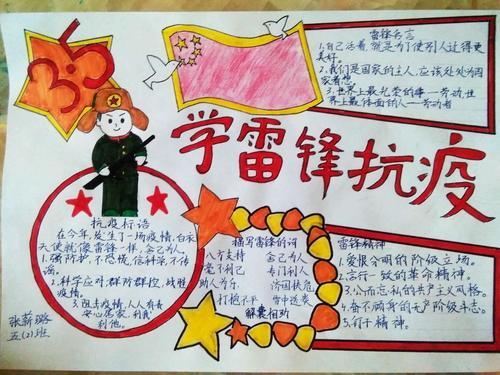 3.5
雷锋名言
1.自己活着,就是为了使别人过得更
美好。
2.我们是国家的主人,应该处处为国
家着想。
3.世界上最光荣的事—劳动,世
界上最体面的人—劳动者
学雷锋抗疫
抗疫标语
在今年,发生了一场疫情,白衣
天使就像雷锋一样,舍己为人
1.强防护,不恐慌,信科学,不传
谣。
2.科学应对,群防群控,战胜
疫情。
3.阻击疫情,人人有责
安心居家,利我
利他。
描写雷锋的词
八方支持 舍己为人
毫不利己 专门利人
助人为乐 济困扶危
打抱不平 雪中送炭
解囊相助
雷锋精神
1.爱憎分明的阶级立场。
2.言行一致的革命精神。
3.公而忘私的共产主义风格。
4.奋不顾身的无产阶级斗志。
5.钉子精神。
张薪璐
五(2)班